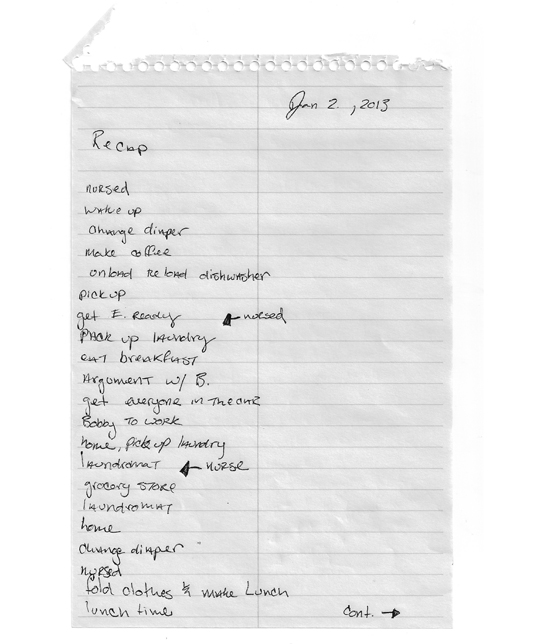 Jan 2. , 2013
Recap
nursed
wake up
change diaper
make coffee
unload reload dishwasher
pick up
get E. Ready ← nursed
Pack up laundry
eat breakfast
Argument w/ B.
get everyone in the car
Bobby to work
home, pick up laundry
laundromat ← nurse
grocery store
laundromat
home
change diaper
nursed
fold clothes & make Lunch
lunch time
Cont. →